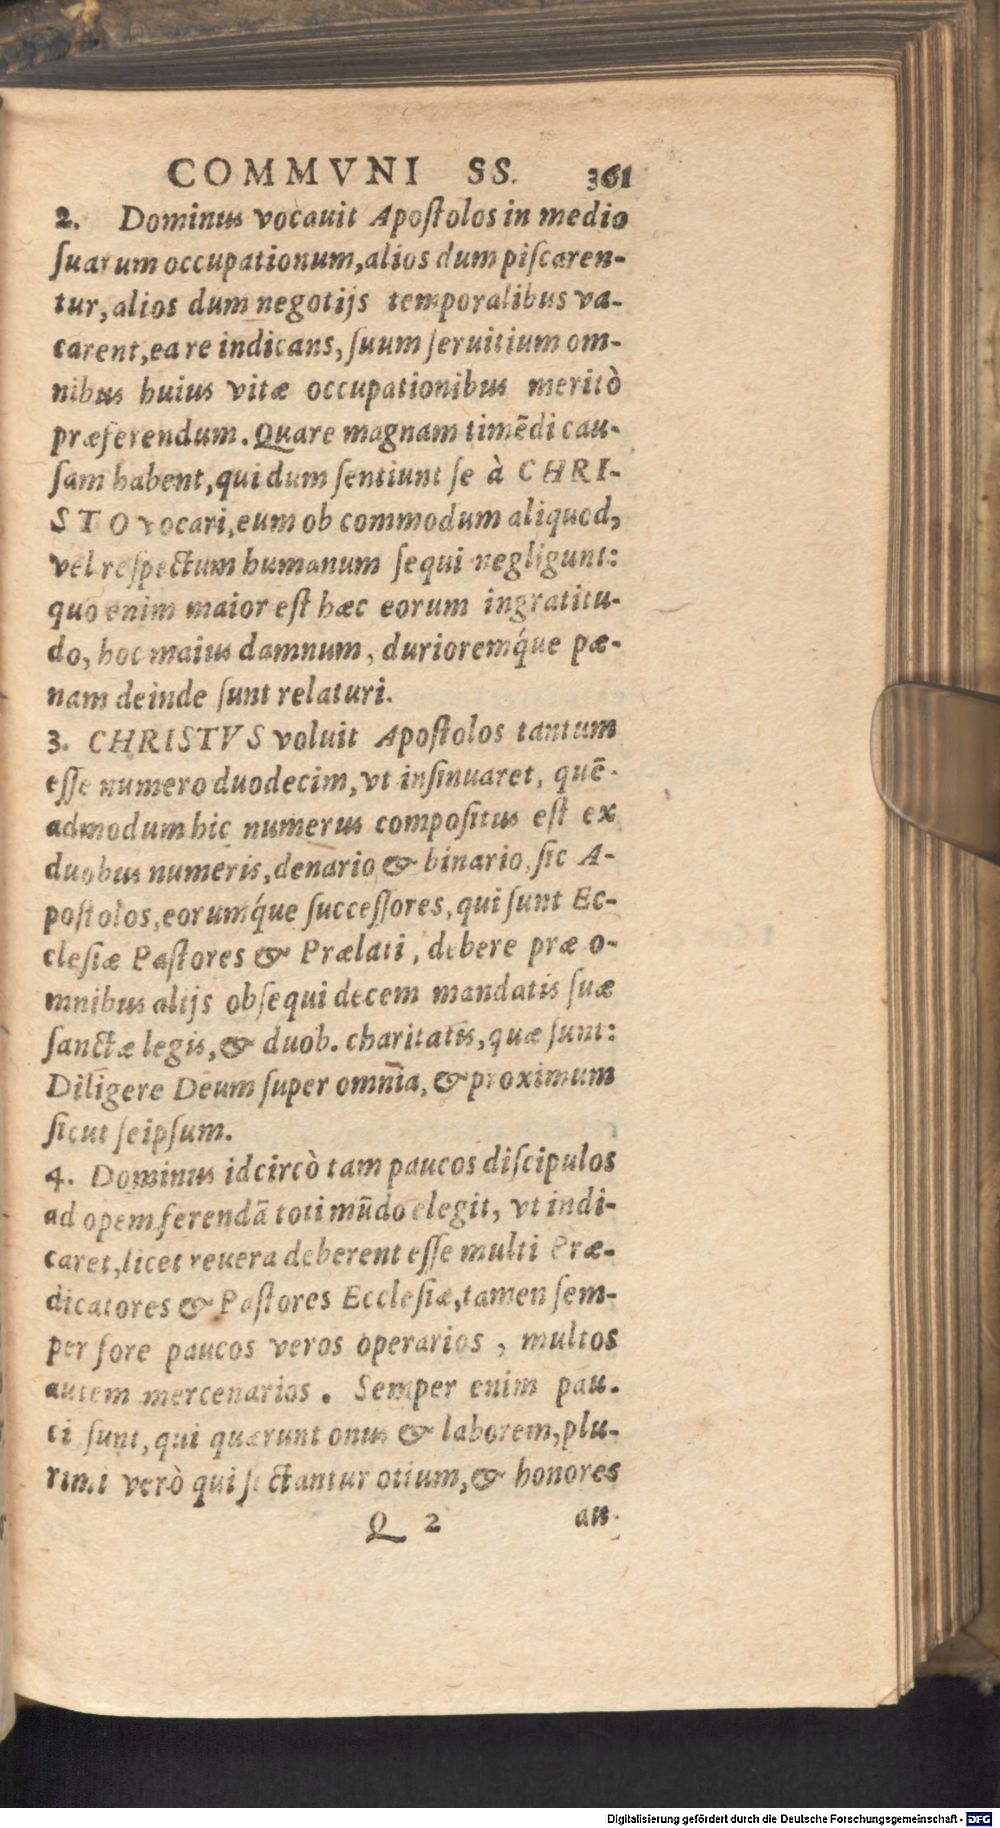 COMMVNI SS. 361
2. Dominus vocauit Apoſtolos in medio
ſuarum occupationum, alios dum piſcaren-
tur, alios dum negotijs temporalibus va-
carent, ea re indicans, ſuum ſeruitium om-
nibus huius vitæ occupationibus meritò
præferendum. Quare magnam timēdi cau-
ſam habent, qui dum ſentiunt ſe à CHRI-
STO vocari, eum ob commodum aliquod,
vel reſpectum humanum ſequi negligunt:
quo enim maior eſt hæc eorum ingratitu-
do, hoc maius damnum, durioremq́ue pæ-
nam deinde ſunt relaturi.
3. CHRISTVS voluit Apoſtolos tantum
eſſe numero duodecim, vt inſinuaret, quē-
admodum hic numerus compoſitus eſt ex
duobus numeris, denario & binario, ſic A-
poſtolos, eorumq́ue ſucceſſores, qui ſunt Ec-
cleſiæ Paſtores & Prælati, debere præ o-
mnibus alijs obſequi decem mandatis ſuæ
ſanctæ legis, & duob. charitatis, quæ ſunt:
Diligere Deum ſuper omnia, & proximum
ſicut ſeipſum.
4. Dominus idcircò tam paucos diſcipulos
ad opem ferendā toti mūdo elegit, vt indi-
caret, licet reuera deberent eſſe multi Præ-
dicatores & Paſtores Eccleſiæ, tamen ſem-
per fore paucos veros operarios, multos
autem mercenarios. Semper enim pau-
ci ſunt, qui quærunt onus & laborem, plu-
rimi verò qui ſectantur otium, & honores
Q 2 au-
Digitalisierung gefördert durch die Deutsche Forschungsgemeinschaft - DFG